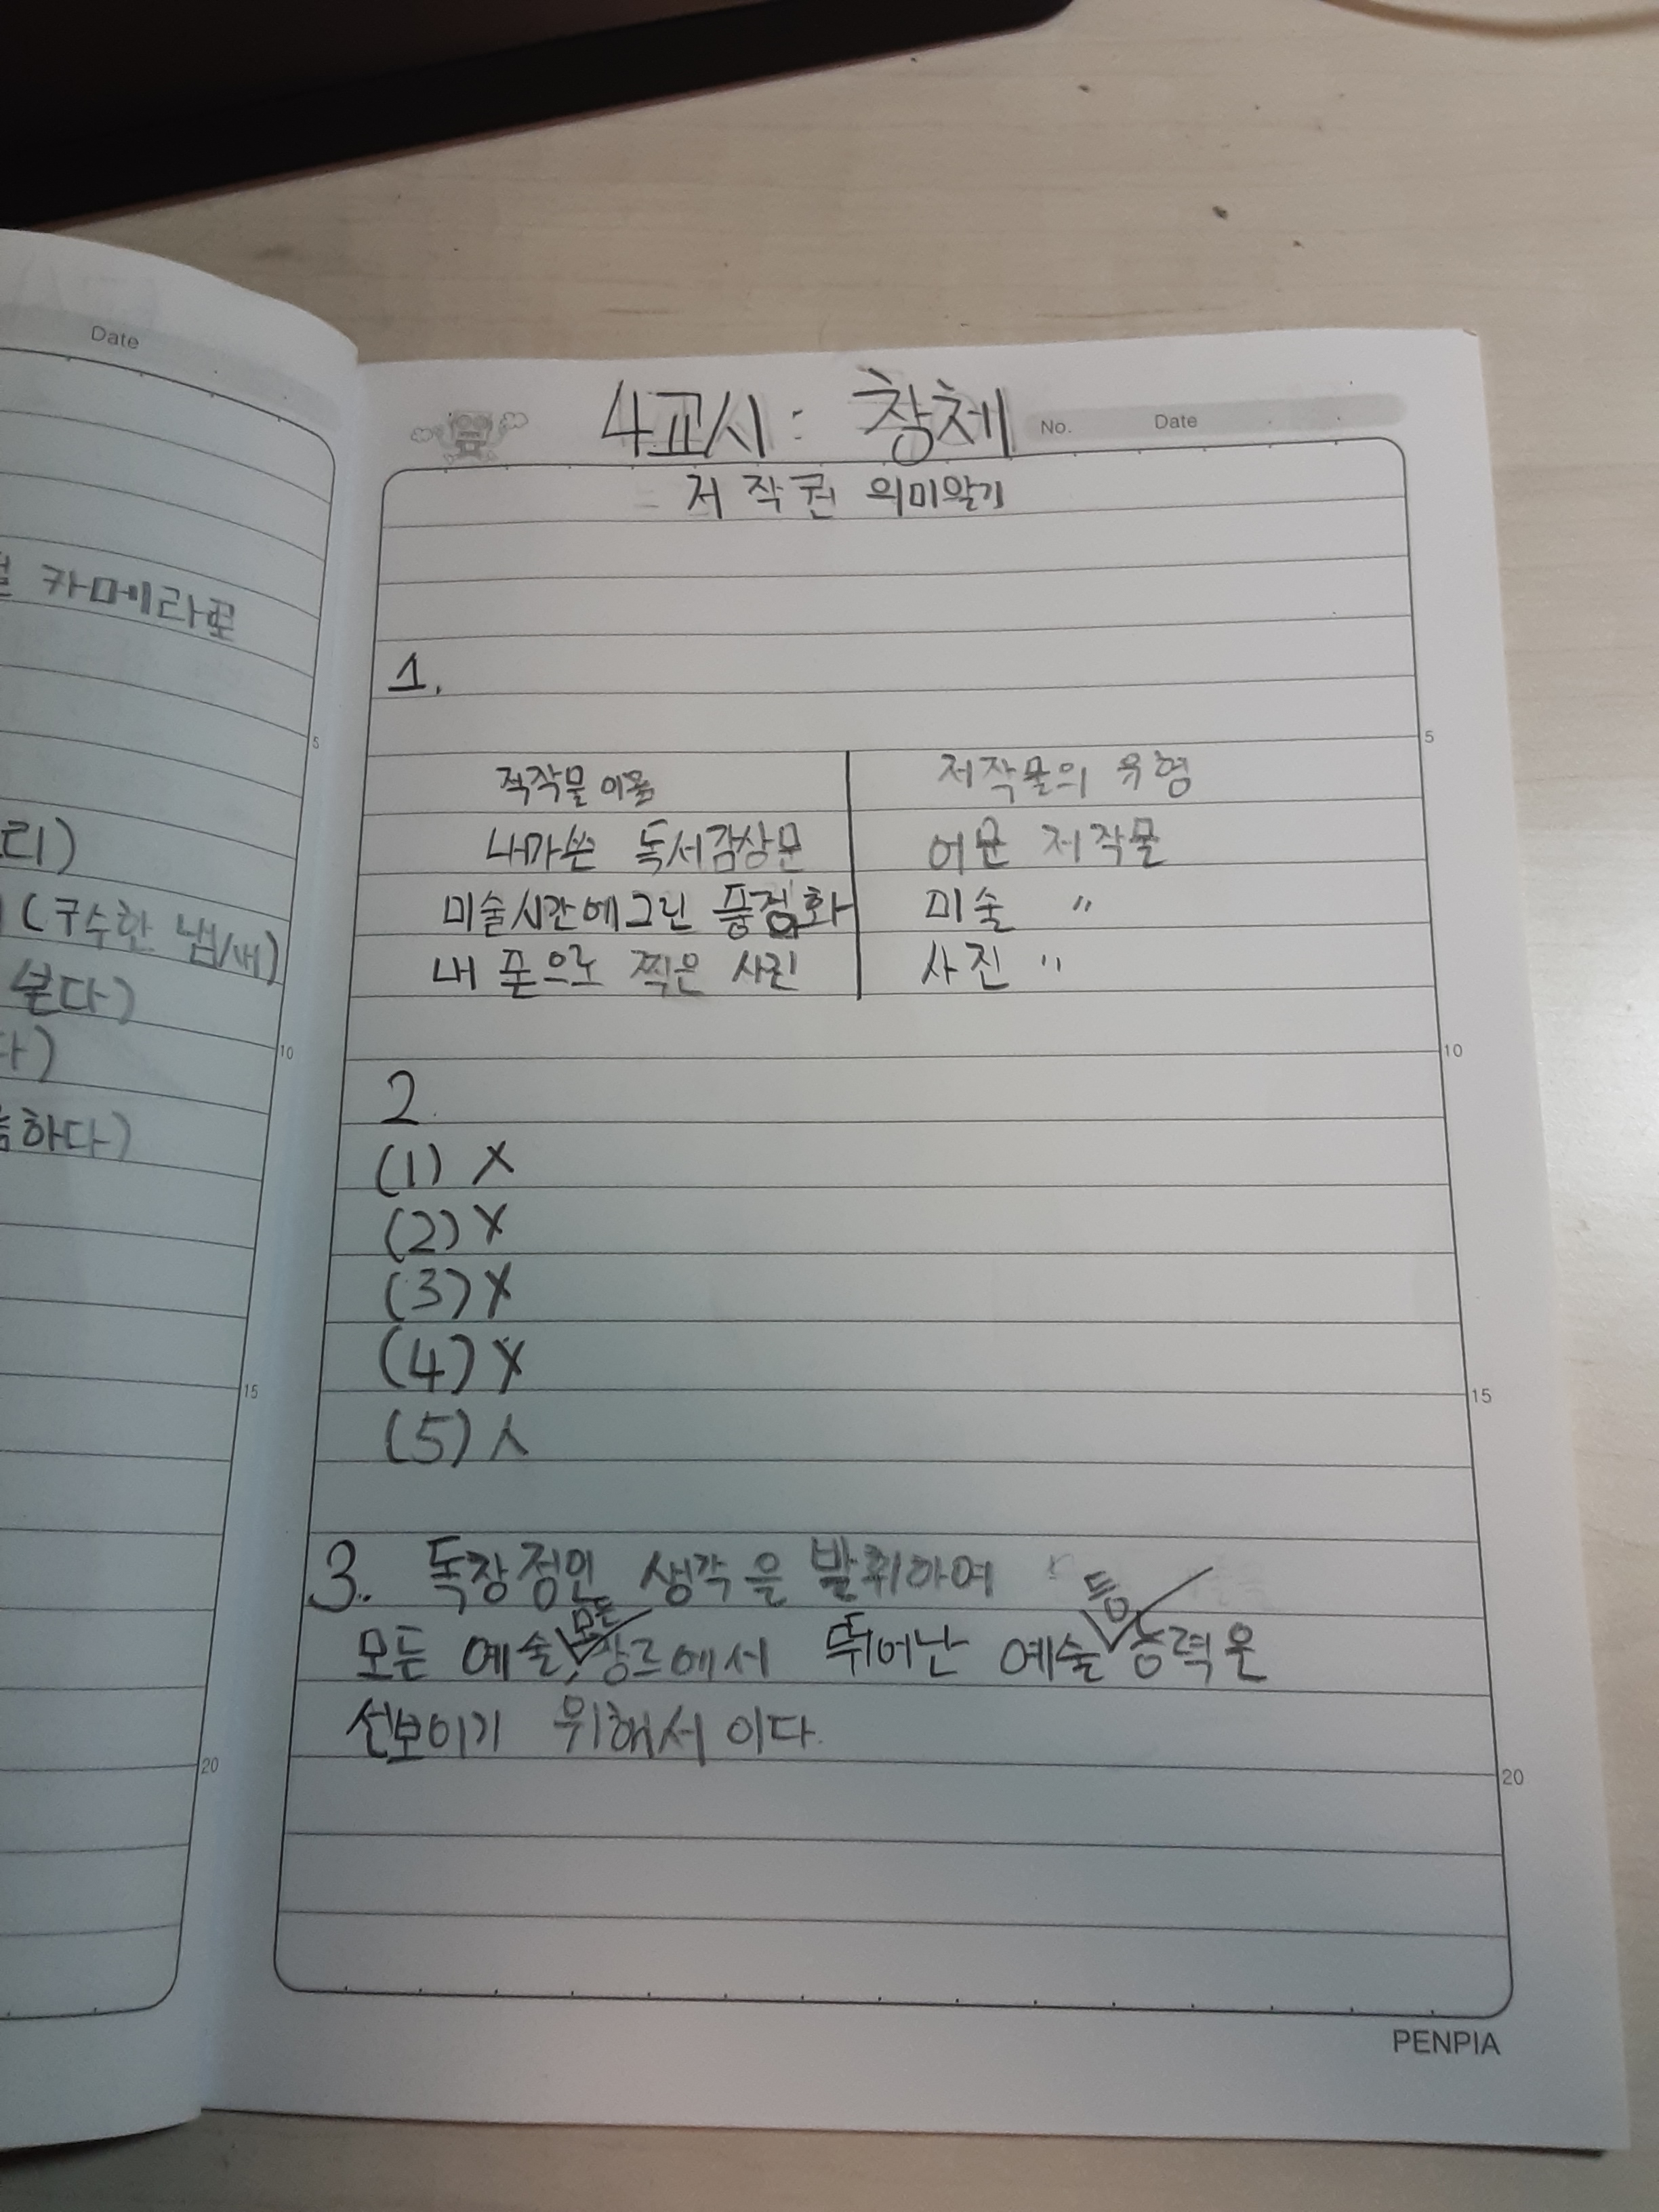 Date
카메라로
리)
(구수한 냄새)
본다)
다)
하다)
5
10
15
20
4교시: 창체
No. Date
저작권 의미알기
1.
적작물 이름 저작물의 유형
내가쓴 독서감상문 어문 저작물
미술시간에그린 풍경화 미술 "
내 폰으로 찍은 사진 사진 "
2.
(1) X
(2) X
(3) X
(4) X
(5)
3. 독창정인 생각을 발휘하여
모든 예술 모든 장르에서 뛰어난 예술 등 능력은
선보이기 위해서 이다.
5
10
15
20
PENPIA